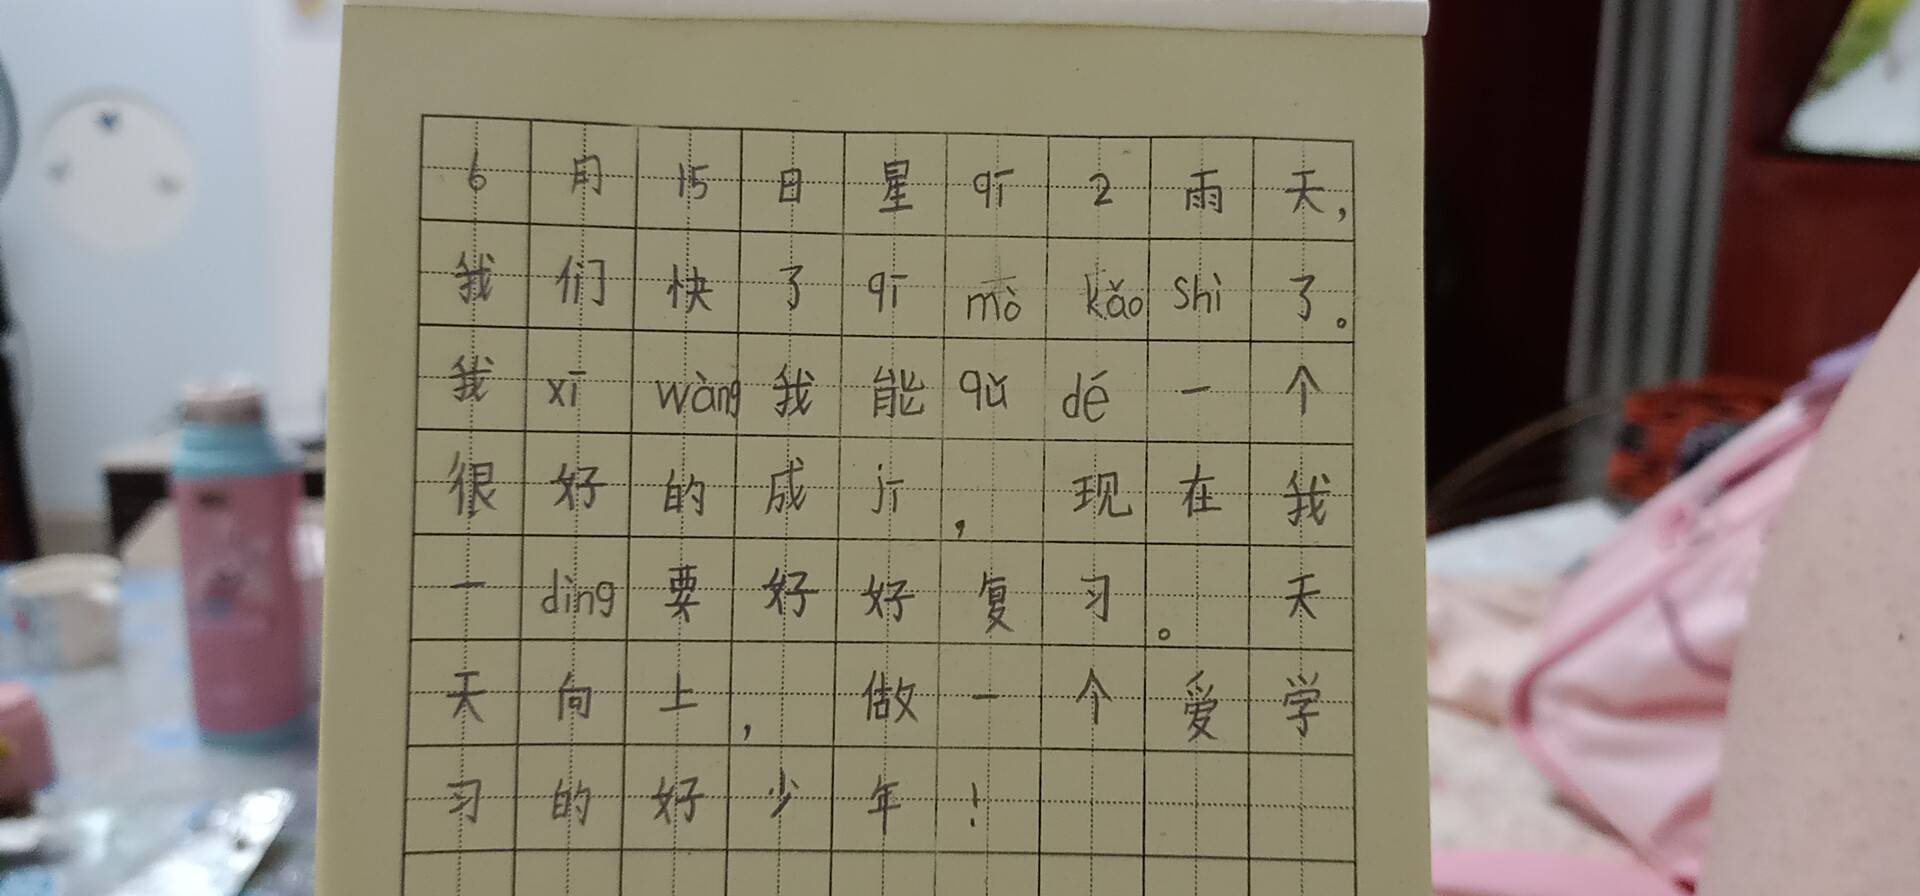 6月15日星qī2雨天，
我们快了qī mò kǎo shì了。
我xī wàng我能qǔ dé一个
很好的成jī，现在我
一dìng要好好复习。天
天向上，做一个爱学
习的好少年！